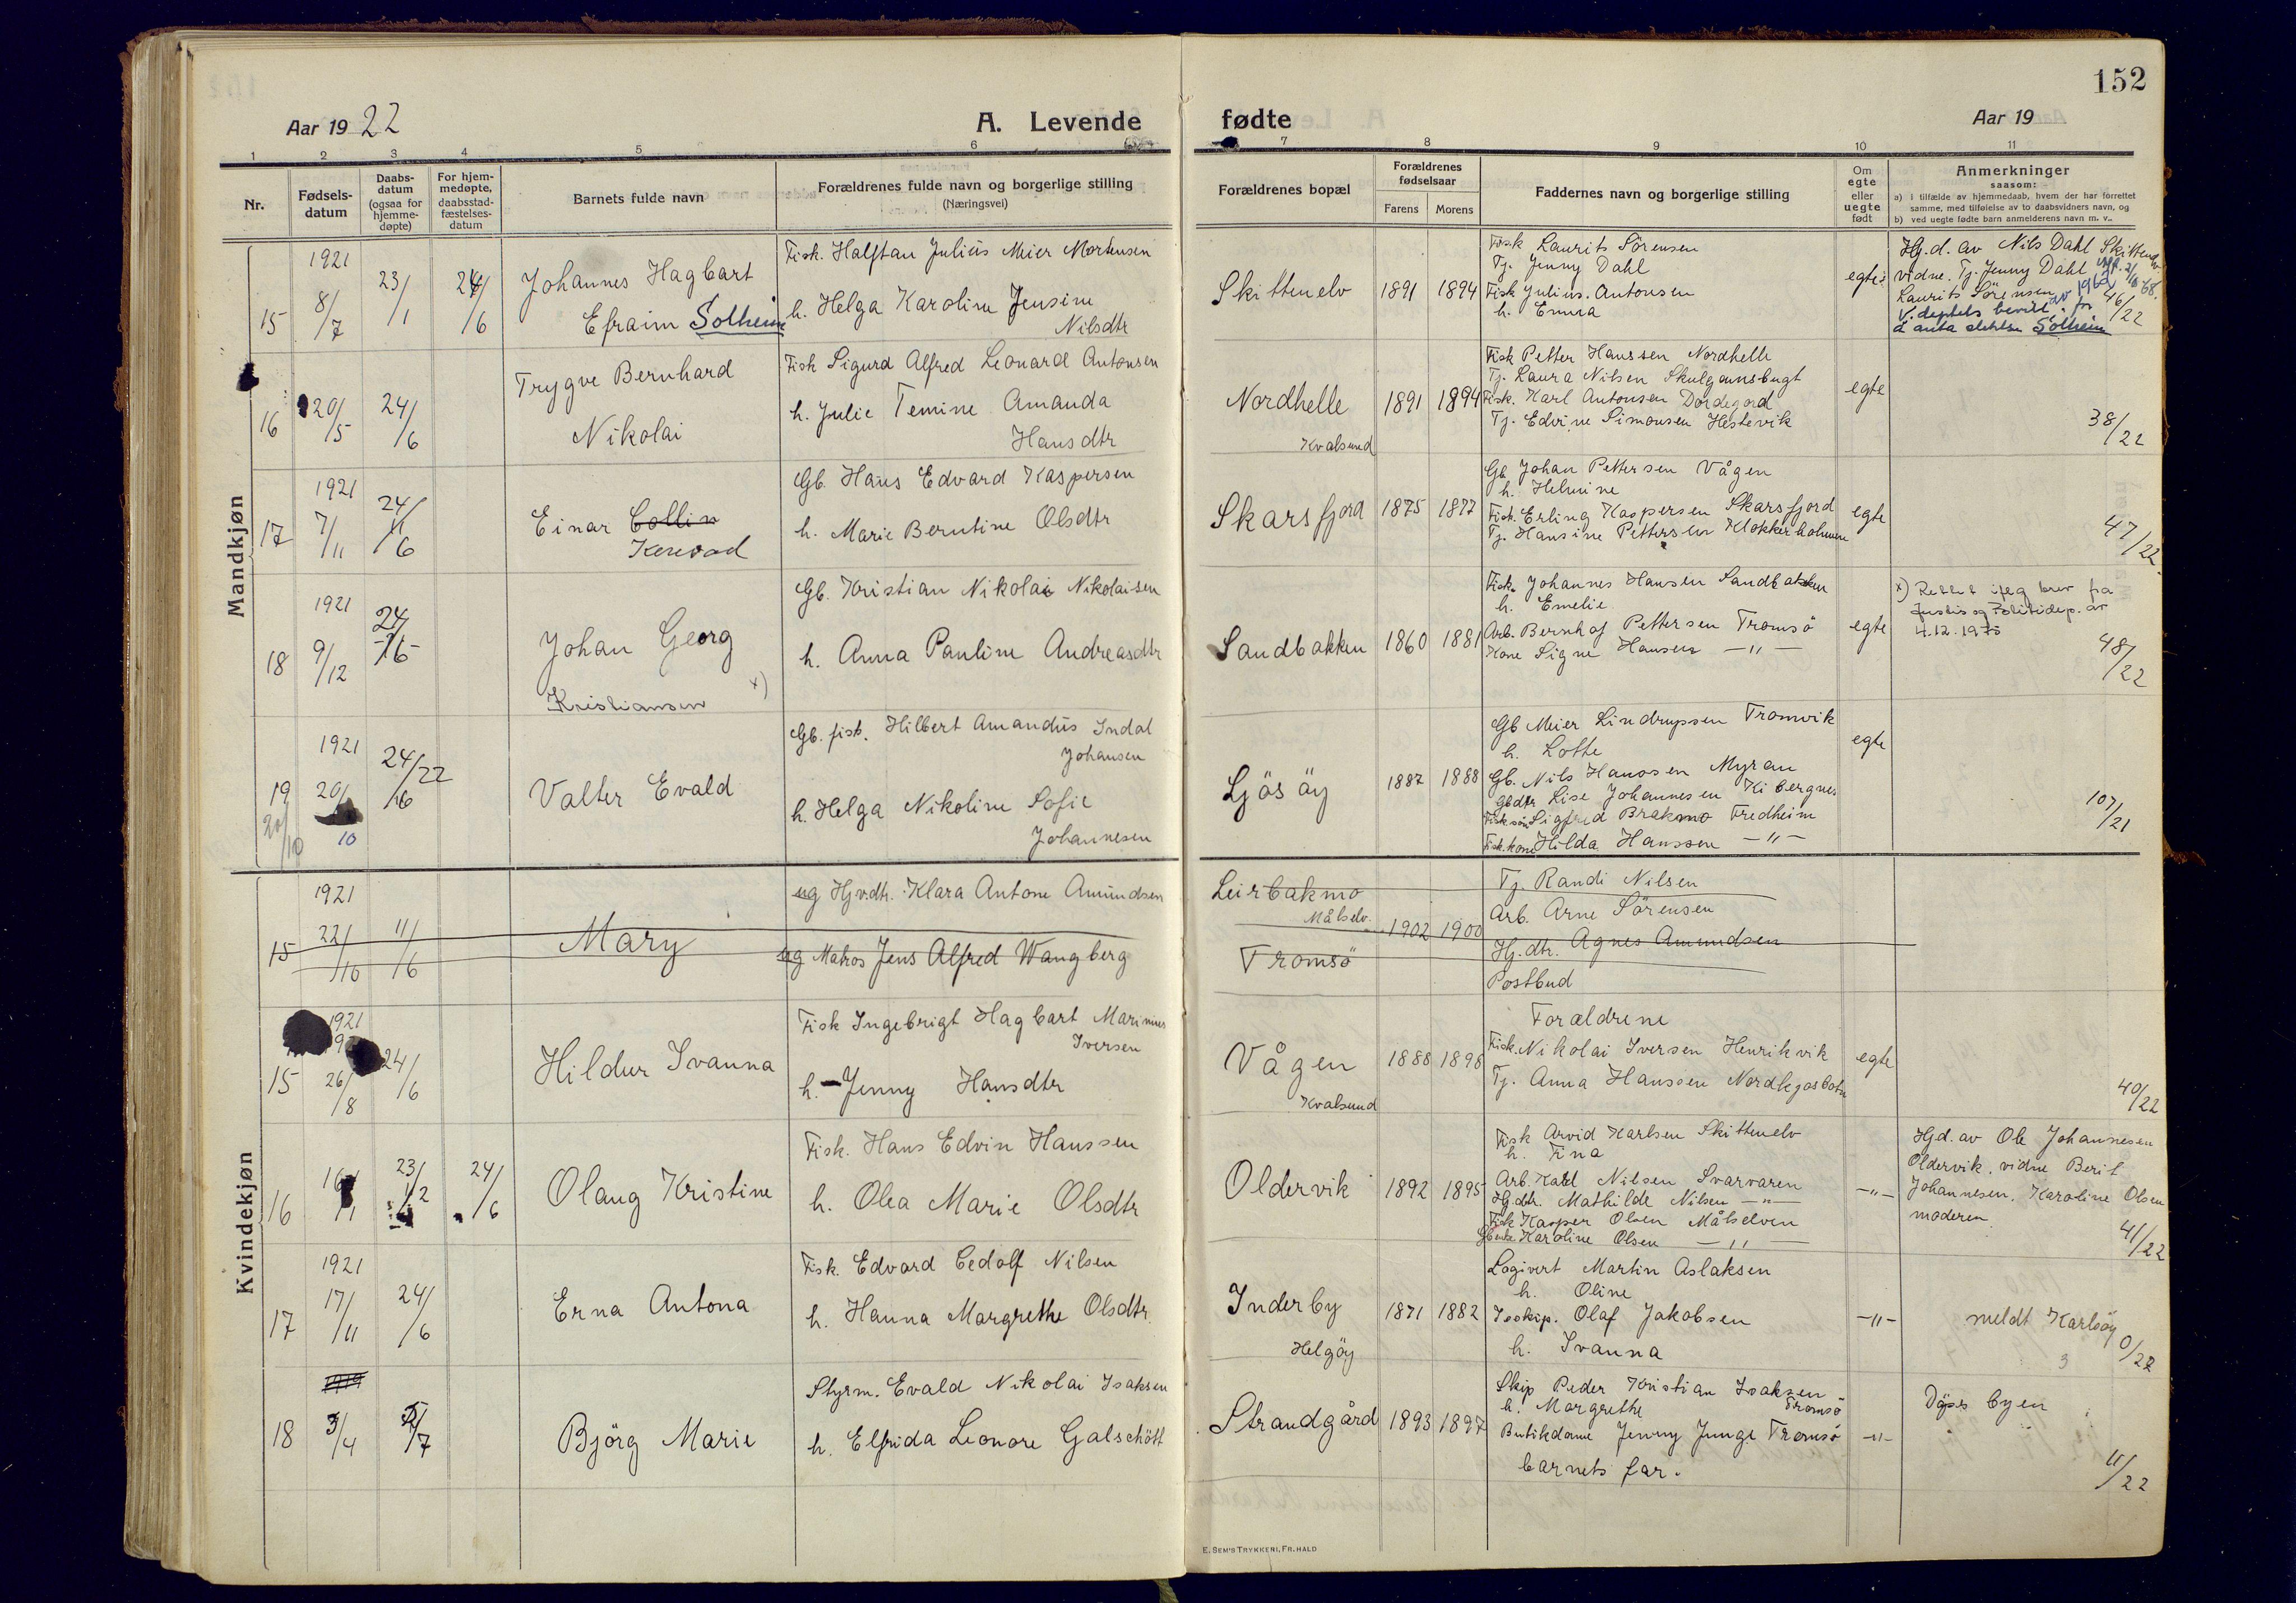 152
Aar 1922
A. Levende
fødte
Aar 19
1 2 3 4 5 6 7 8 9 10 11
Nr.
Fødsels-
datum
Daabs-
datum
(ogsaa for
hjemme-
døpte)
For hjem-
medøpte,
daabsstad-
fæstelses-
datum
Barnets fulde navn
Forældrenes fulde navn og borgerlige stilling
(Næringsvei)
Forældrenes bopæl
Forældrenes
fødselsaar
Farens
Morens
Faddernes navn og borgerlige stilling
Om
egte
eller
uegte
født
Anmerkninger
saasom:
a) i tilfælde av hjemmedaab, hvem der har forrettet
samme, med tilføielse av to daabsvidners navn, og
b) ved uegte fødte barn anmelderens navn m. v..
Mandkjøn
15
1921
8/7
23/1
24/6
Johannes Hagbart
Efraim Solheim
Fisk. Halftan Julius Meier Mortensen
h. Helga Karoline Jensine
Nilsdtr
Skittenelv
1891
1894
Fisk Laurits Sörensen
Tj. Jenny Dahl
Fisk Julius. Antonsen
h. Emma
egte
Hj.d. av Nils Dahl Skittenelv
vidne. Tj. Jenny Dahl
Laurits Sörensen
46/22
Solheim
16
20/5
24/6
Trygve Bernhard
Nikolai
Fisk Sigurd Alfred Leonard Antonsen
h. Julie Temine Amanda
Hansdtr
Nordhelle
Kvalsund
1891
1894
Fisk Petter Hanssen Nordhelle
Tj. Laura Nilsen Skulgamsbugt
Fisk. Karl Antonsen
Tj. Edvine Simonsen Hestevik
egte
38/22
17
1921
7/11
24/6
Einar Collin
Konrad
Gb. Hans Edvard Kaspersen
h. Marie Berntine Olsdtr
Skarsfjord
1875
1877
Gb. Johan Pettersen Vågen
h. Helmine
Fisk. Erling Kaspersen Skarsfjord
Tj. Hansine Pettersen Klokkerholmen
egte
47/22
18
1921
9/12
24/6
Johan Georg
Kristiansen x)
Gb. Kristian Nikolai Nikolaisen
h. Anna Pauline Andreasdtr
Sandbakken
1860
1881
Fisk. Johannes Hansen Sandbakken
h. Emelie
Arb. Bernhof Pettersen Tromsö
Kone Signe Hansen -"-
egte
x) Rettet iflg brev fra
Justis og Politidep. av
4.12.1975
48/22
19
1921
20/10
10
24/6 22
20/10
Valter Evald
Gb. fisk. Hilbert Amandus Indal
Johansen
h. Helga Nikoline Sofie
Johannesen
Ljösöy
1887
1888
Gb Meier Lindrupsen Tromvik
h. Lotte
Gb. Nils Hansen Myran
Gbdtr Lise Johannesen Kibergnes
Fisk.sön Sigfred Brakmo Fredheim
Fisk.kone Hilda Hanssen -"-
egte
107/21
Kvindekjøn
15
1921
22/10
11/6
Mary
ug Hjv.dtr. Klara Antone Amundsen
ug Matros Jens Alfred Wangberg
Leirbakmo
Målselv.
Tromsö
1902
1900
Tj. Randi Nilsen
Arb. Arne Sörensen
Hj.dtr. Agnes Amundsen
Postbud
15
1921
26/8
24/6
Hildur Ivanna
Fisk Ingebrigt Hagbart Marinius
Iversen
h. Jenny Hansdtr
Vågen
Kvalsund
1888
1898
Forældrene
Fisk. Nikolai Iversen Henrikvik
Tj. Anna Hanssen
egte
40/22
16
16/1
23/2
24/6
Olaug Kristine
Fisk. Hans Edvin Hanssen
h. Olea Marie Olsdtr
Oldervik
1892
1895
Fisk Arvid Karlsen Skittenelv
h. Fina
Arb. Karl Nilsen Svarvaren
Hj.dtr. Mathilde Nilsen -"-
Fisk Kasper Olsen Målselven
Karoline Olsen -"-
-"-
Hjd. av Ole Johannesen
Oldervik. vidne Berit
Johannesen, Karoline Olsen
moderen.
41/22
17
1921
17/11
24/6
Erna Antona
Fisk. Edvard Cedolf Nilsen
h. Hanna Margrethe Olsdtr.
Inderby
Helgöy
1871
1882
Logivert Martin Aslaksen
h. Oline
Isskip. Olaf Jakobsen
h. Ivanna
-"-
meldt Karlsöy
0/22
3
18
1919
3/4
2/7
Björg Marie
Styrm. Evald Nikolai Isaksen
h. Elfrida Leonore Galschött
Strandgård
1893
1897
Skip Peder Kristian Isaksen
h. Margrethe Tromsö
Butikdame Jenny Junge Tromsö
barnets far.
-"-
Döps byen
11/22
E. SEM'S TRYKKERI, FR.HALD